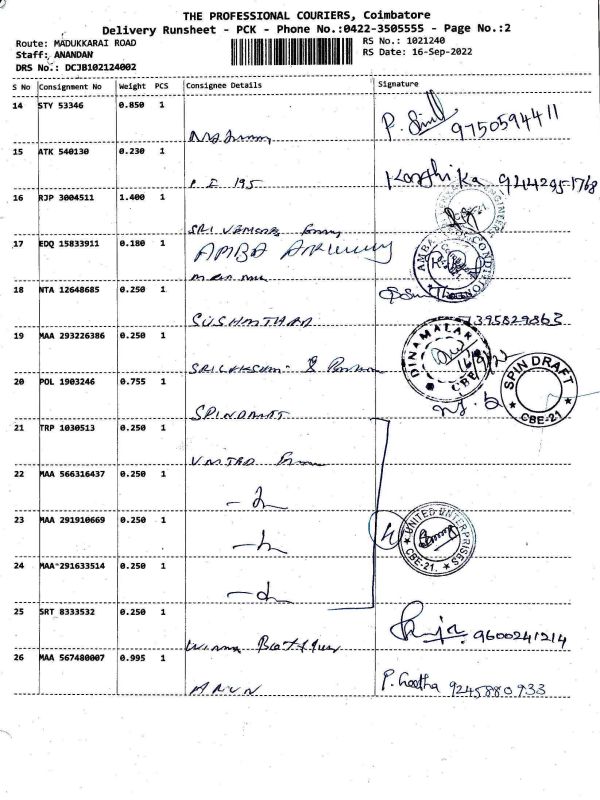 THE PROFESSIONAL COURIERS, Coimbatore
Delivery Runsheet - PCK - Phone No.:0422-3505555 - Page No.:2
Route: MADUKKARAI ROAD RS No.: 1021240
Staff: ANANDAN RS Date: 16-Sep-2022
DRS No.: DCJB102124002
S No Consignment No Weight PCS Consignee Details Signature
14 STY 53346 0.850 1
9750594411
15 ATK 540130 0.230 1
P. I 195 9442951768
16 RJP 3004511 1.400 1
SRI
17 EDQ 15833911 0.180 1
AMBA
AMBA AIR CONDITION
18 NTA 12648685 0.250 1
7395829863
19 MAA 293226386 0.250 1
DINAMALAR CBE
20 POL 1903246 0.755 1
SPINDRAFT
SPIN DRAFT CBE-21
21 TRP 1030513 0.250 1
UNITED
22 MAA 566316437 0.250 1
23 MAA 291910669 0.250 1
4
UNITED ENTERPRISES CBE-21.
24 MAA 291633514 0.250 1
25 SRT 8333532 0.250 1
9600241214
26 MAA 567480007 0.995 1
ARUN P. Geetha 9245880933